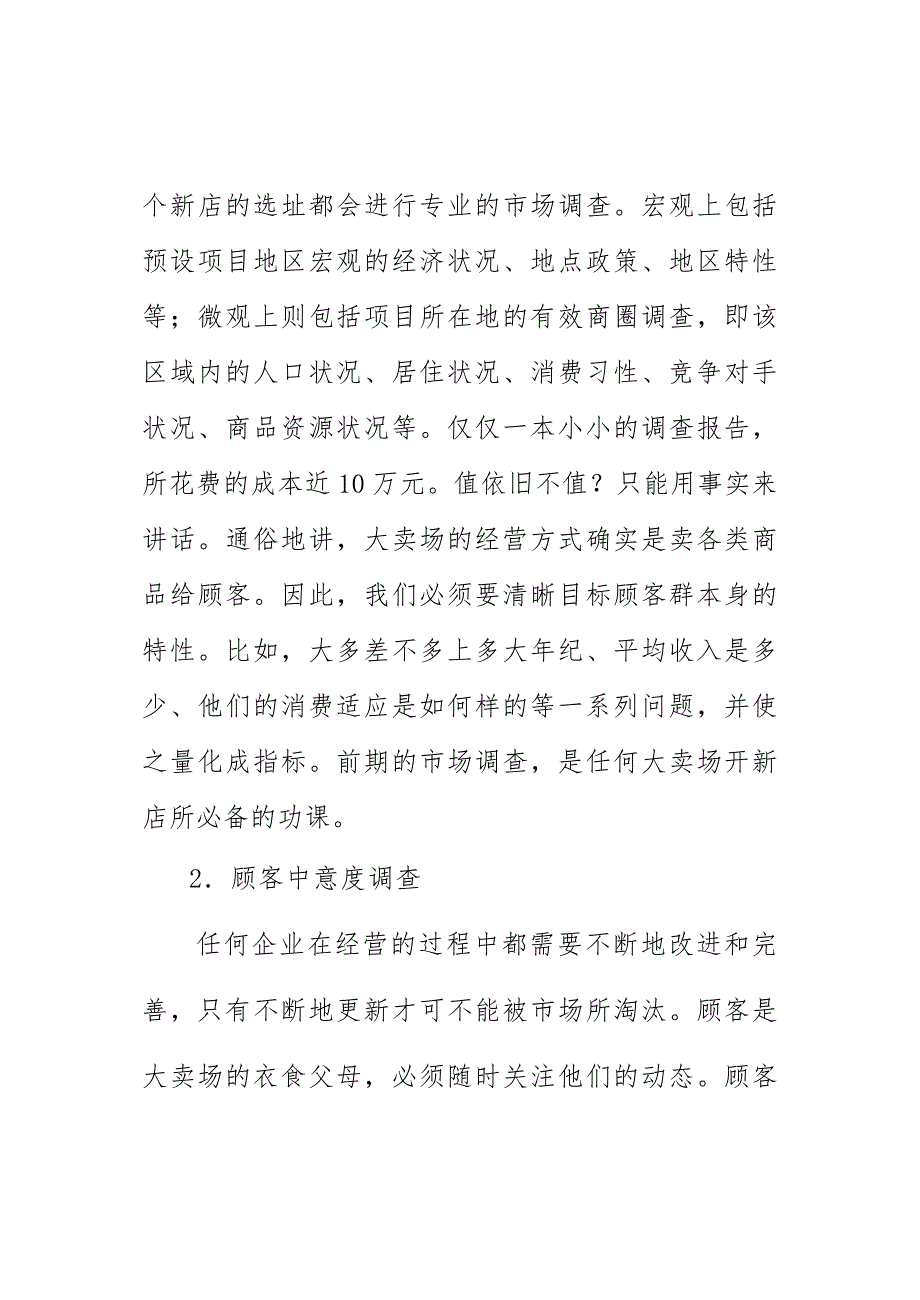 个新店的选址都会进行专业的市场调查。宏观上包括
预设项目地区宏观的经济状况、地点政策、地区特性
等；微观上则包括项目所在地的有效商圈调查，即该
区域内的人口状况、居住状况、消费习性、竞争对手
状况、商品资源状况等。仅仅一本小小的调查报告，
所花费的成本近10万元。值依旧不值？只能用事实来
讲话。通俗地讲，大卖场的经营方式确实是卖各类商
品给顾客。因此，我们必须要清晰目标顾客群本身的
特性。比如，大多差不多上多大年纪、平均收入是多
少、他们的消费适应是如何样的等一系列问题，并使
之量化成指标。前期的市场调查，是任何大卖场开新
店所必备的功课。
2．顾客中意度调查
任何企业在经营的过程中都需要不断地改进和完
善，只有不断地更新才可不能被市场所淘汰。顾客是
大卖场的衣食父母，必须随时关注他们的动态。顾客